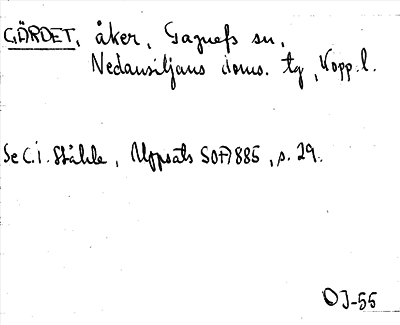 GÄRDET, åker, Gagnefs sn,
Nedansiljans doms. tg, Kopp. l.
Se C. I. Ståhle, Uppsats SOFI 885, s. 29.
OJ-55